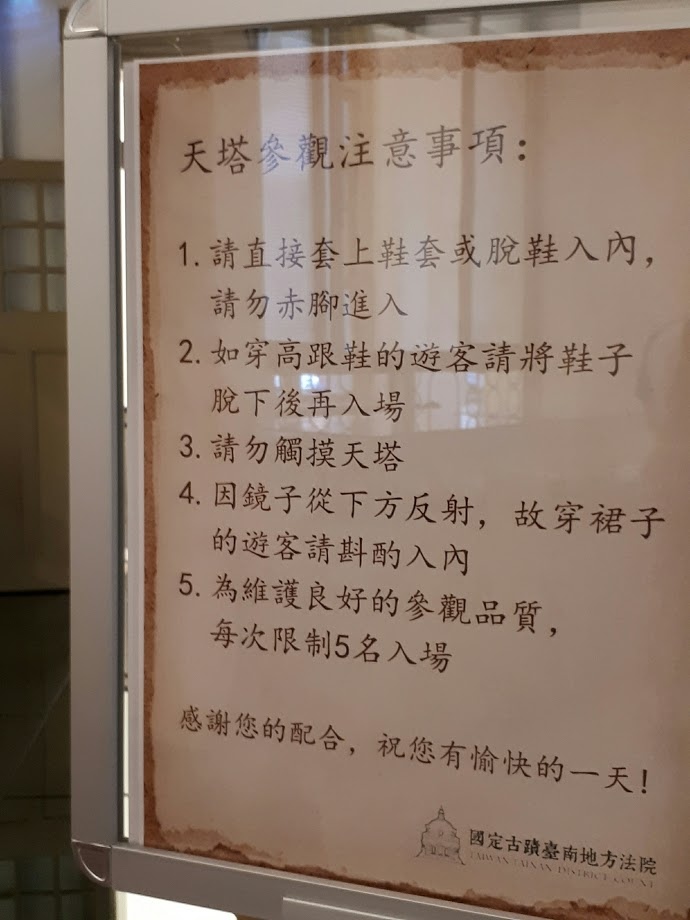 天塔參觀注意事項：
1. 請直接套上鞋套或脫鞋入內，
請勿赤腳進入
2. 如穿高跟鞋的遊客請將鞋子
脫下後再入場
3. 請勿觸摸天塔
4. 因鏡子從下方反射，故穿裙子
的遊客請斟酌入內
5. 為維護良好的參觀品質，
每次限制5名入場
感謝您的配合，祝您有愉快的一天！
國定古蹟臺南地方法院
TAIWAN TAINAN DISTRICT COURT